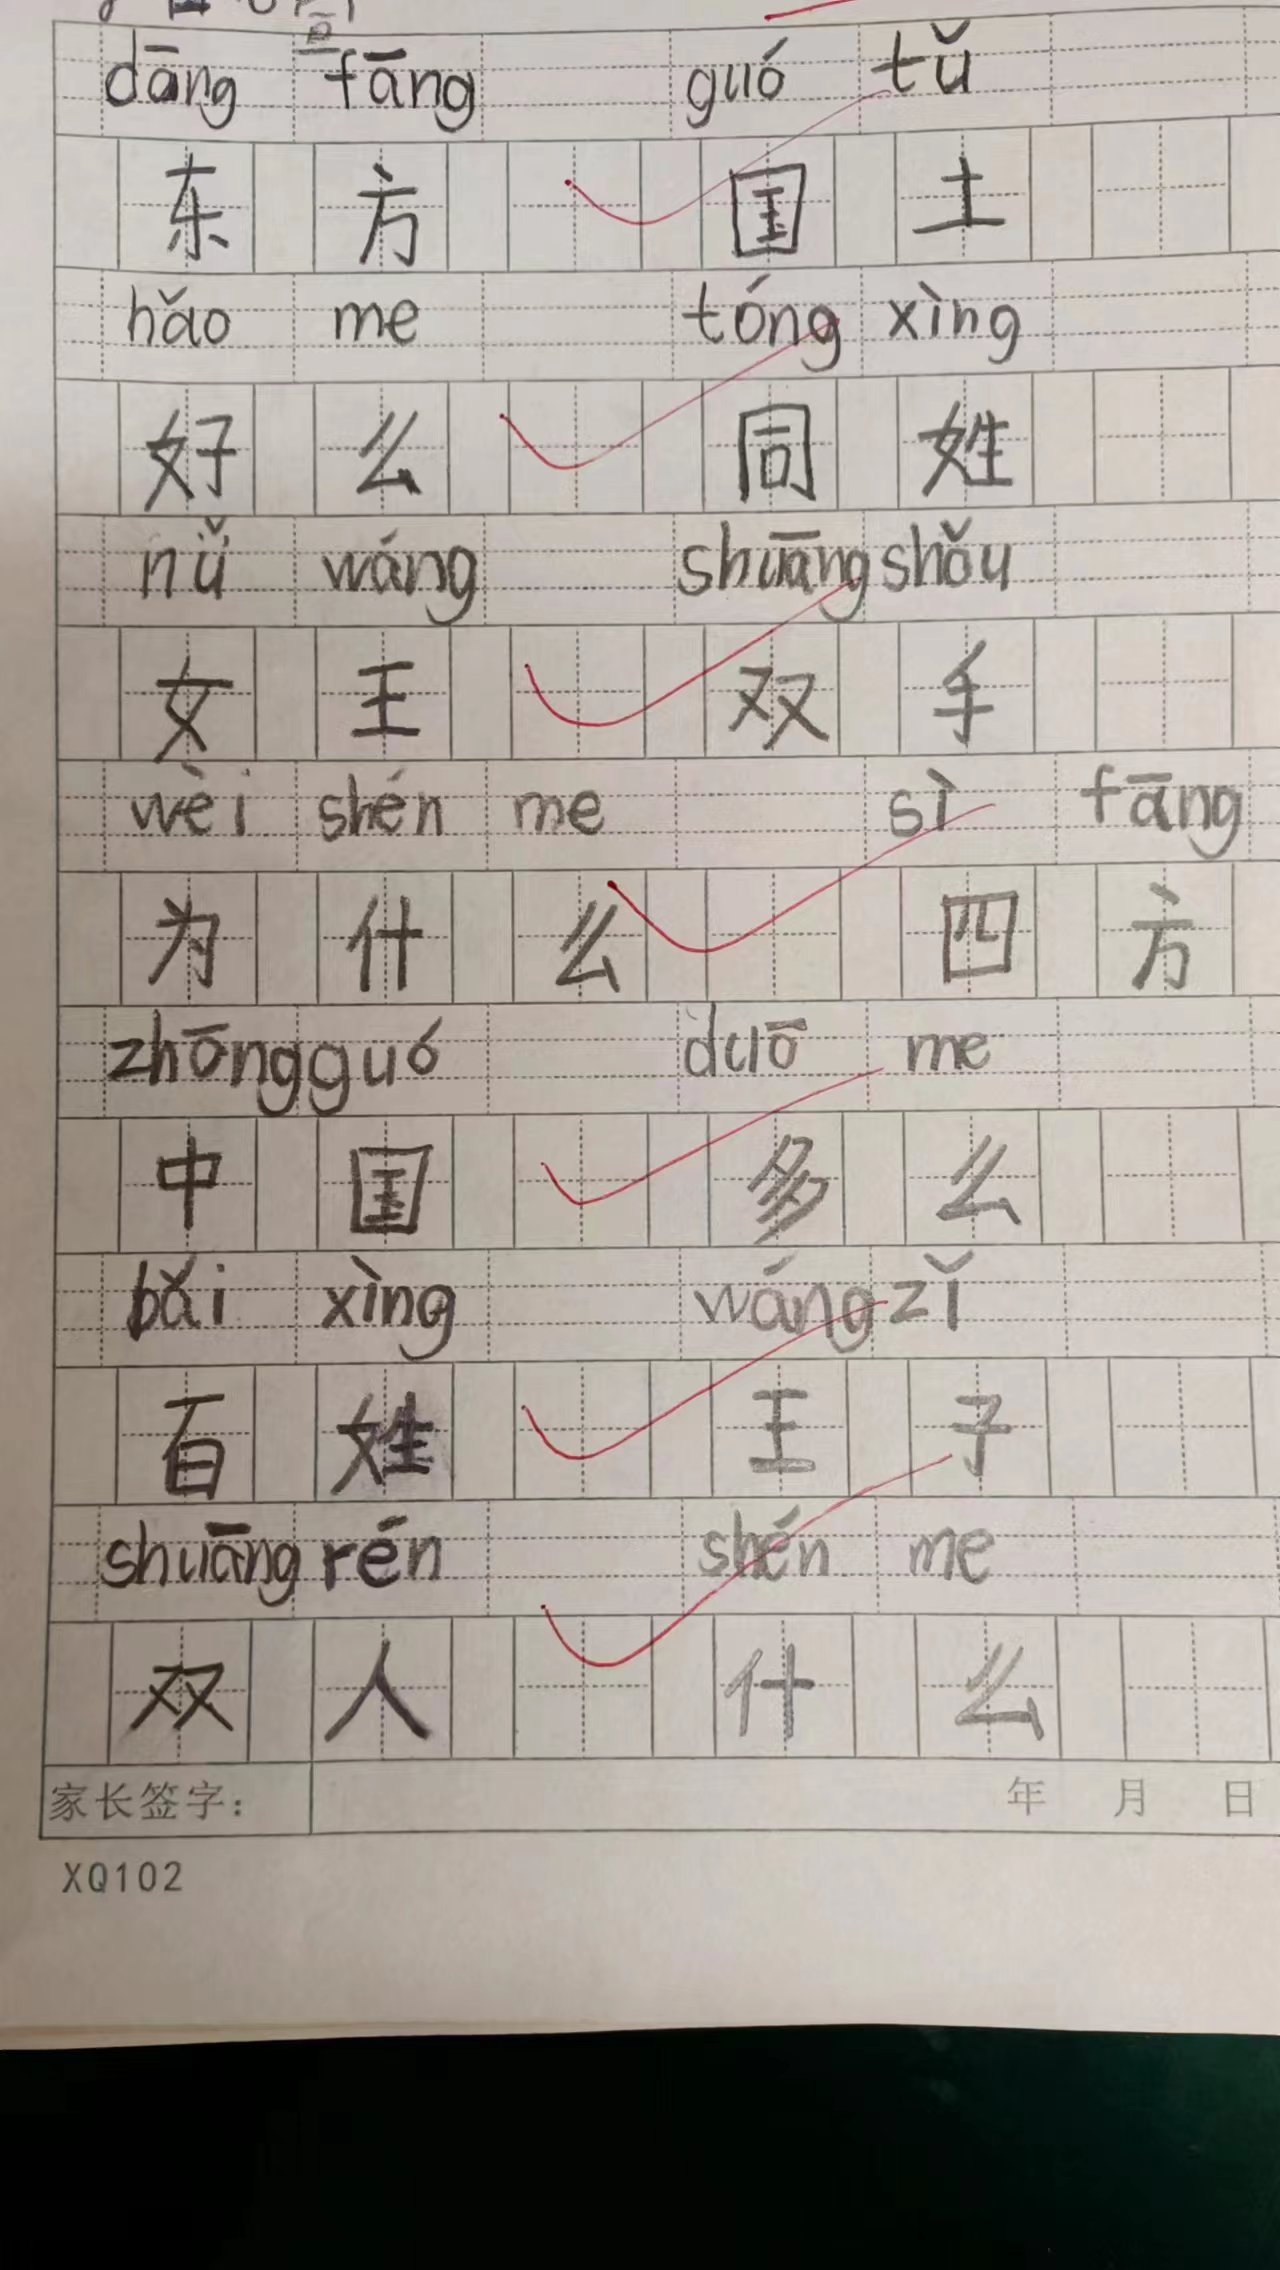 dāng fāng guó tǔ
东方 国土
hǎo me tóng xìng
好么 同姓
nǚ wáng shuāng shǒu
女王 双手
wèi shén me sì fāng
为什么 四方
zhōng guó duō me
中国 多么
bǎi xìng wáng zǐ
百姓 王子
shuāng rén shén me
双人 什么
家长签字: 年 月 日
XQ102